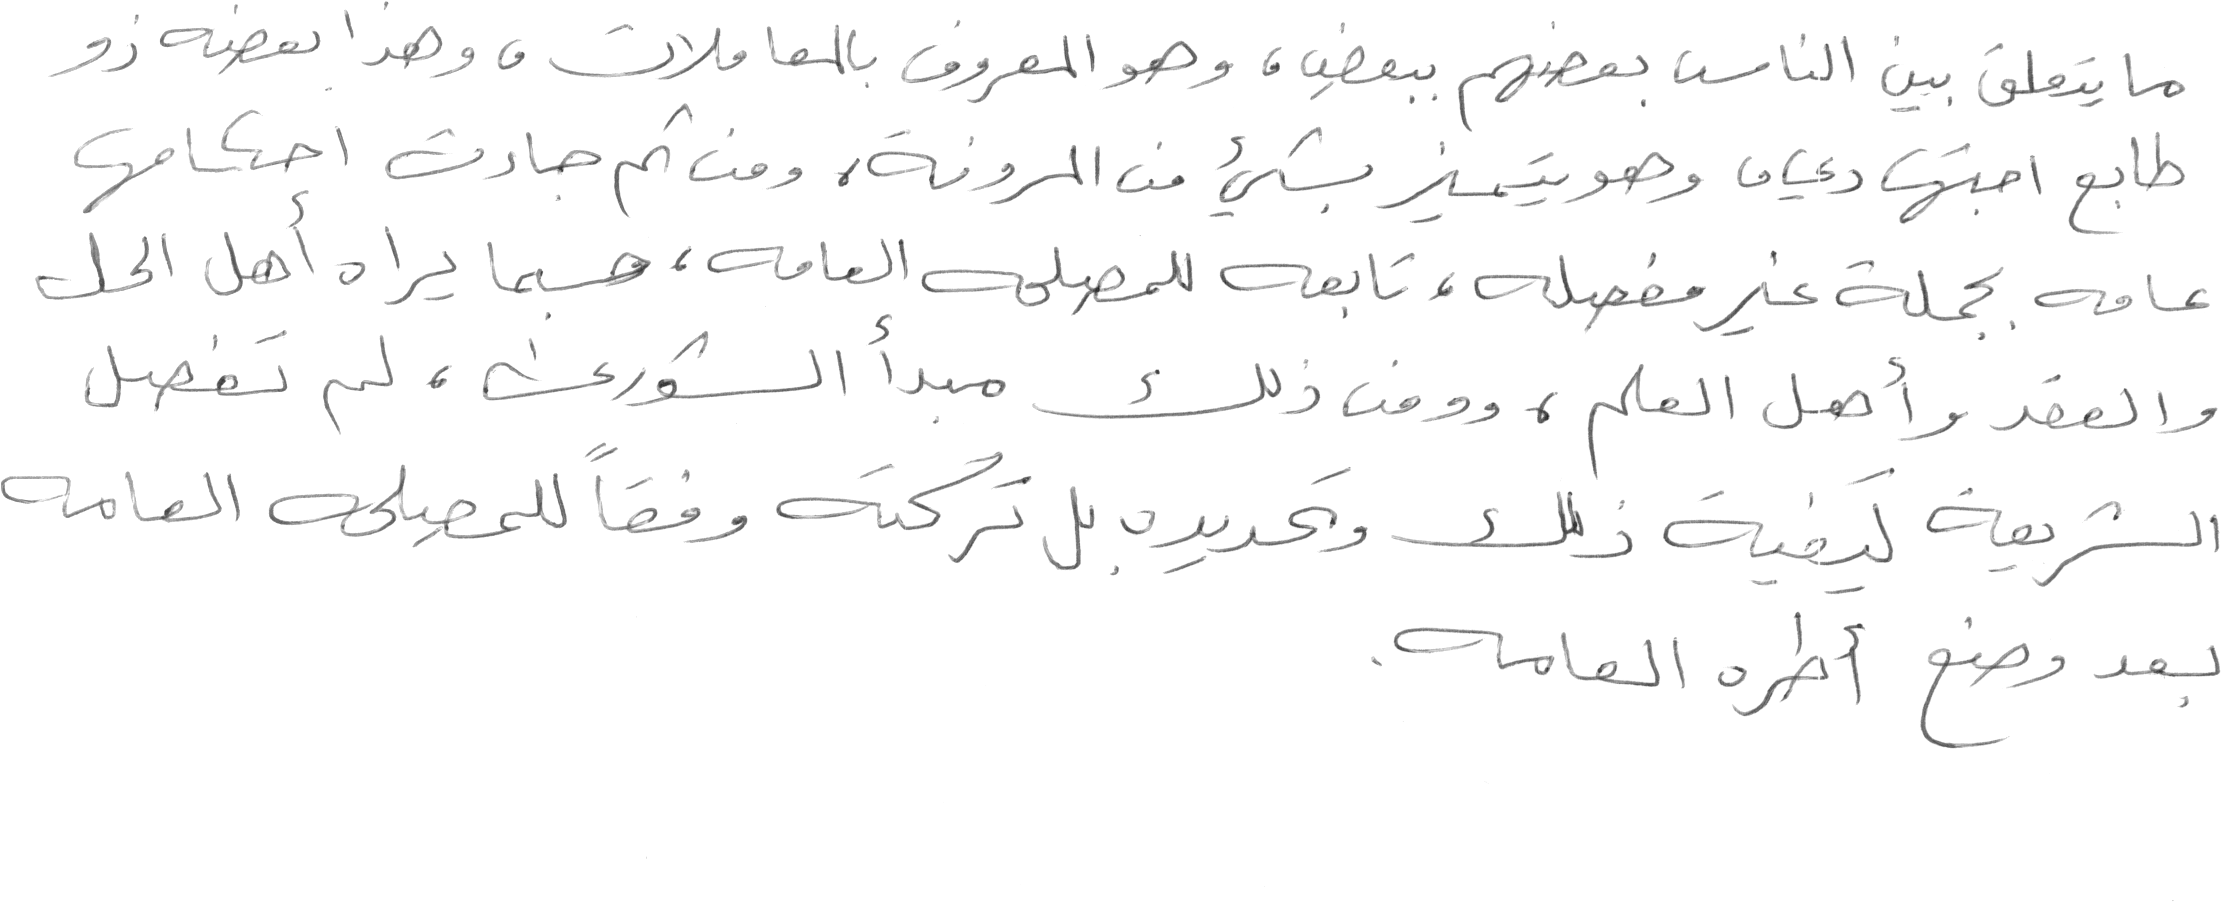 ما يتعلق بين الناس بعضهم ببعض، وهو المعروف بالمعاملات، وهذا بعضه ذو
طابع اجتهادي، وهو يتميز بشئ من المرونة، ومن ثم جاءت احكامها
عامه مجملة غير مفصله، تابعه للمصلحه العامه، حسبما يراه أهل الحل
والعقد وأهل العلم، وومن ذلك مبدأ الشورى، لم تفصل
الشريعة كيفية ذلك وتحديده بل تركته وفقاً للمصلحه العامه
بعد وضع أطره العامه.